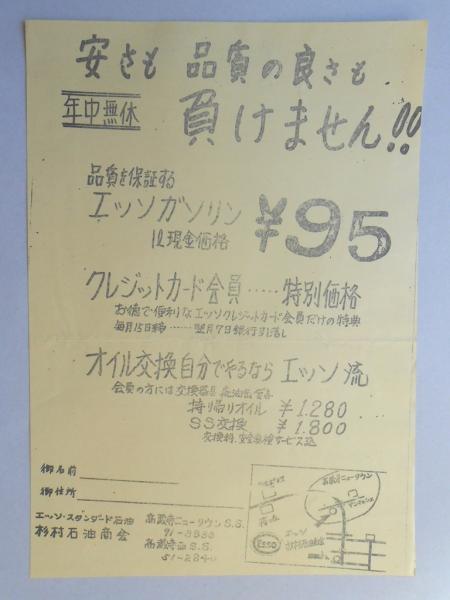 安さも 品質の良さも
年中無休
負けません!!
品質を保証する
エッソガソリン
1L現金価格
¥95
クレジットカード会員‥‥‥特別価格
お徳で便利なエッソクレジットカード会員だけの特典
毎月15日締‥‥‥翌月7日銀行引落し
オイル交換自分でやるなら エッソ流
会員の方には交換器具
持ち帰りオイル ¥1.280
SS交換 ¥1.800
サービス込
御名前
御住所
エッソ・スタンダード石油
杉村石油商会
高蔵寺ニュータウンS.S.
高蔵寺西S.S.
高蔵寺ニュータウン
エッソ
Esso